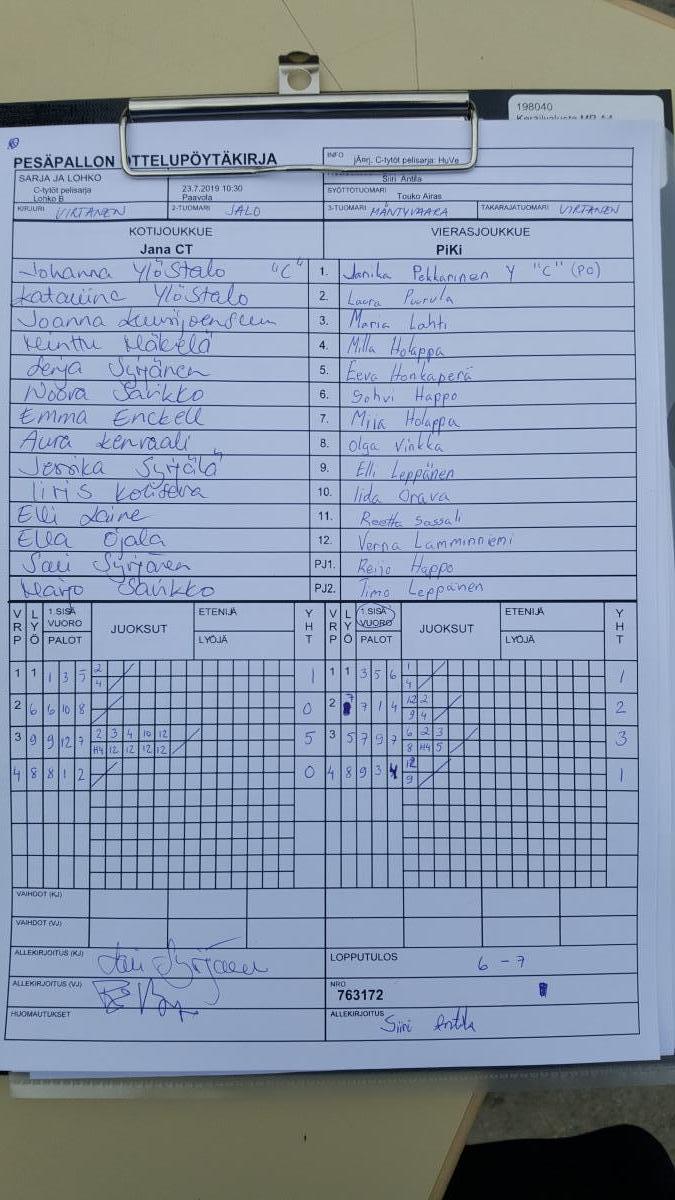 198040
PESÄPALLON OTTELUPÖYTÄKIRJA
INFO jÄrj. C-tytöt pelisarja: HuVe
SARJA JA LOHKO
C-tytöt pelisarja
Lohko B
23.7.2019 10:30
Paavola
Siiri Antila
SYÖTTÖTUOMARI
Touko Airas
KIRJURI VIRTANEN 2-TUOMARI JALO 3-TUOMARI MÄNTYVAARA TAKARAJATUOMARI VIRTANEN
KOTIJOUKKUE VIERASJOUKKUE
Jana CT PiKi
Johanna YlöStalo "C" 1. Janika Pekkarinen Y "C" (PO)
Katariina YlöStalo 2. Laura Purula
Joanna 3. Maria Lahti
Minttu Mäkelä 4. Milla Holappa
Syrjänen 5. Eeva Honkaperä
Noora Sarikko 6. Sohvi Happo
Emma Enckell 7. Miia Holappa
Aura Kenraali 8. Olga Vinkka
Jessika Syrjälä 9. Elli Leppänen
Iiris 10. Iida Orava
Elli Laine 11. Reetta Sassali
Ella Ojala 12. Verna Lamminniemi
Sari Syrjänen PJ1. Reijo Happo
Marjo Sarikko PJ2. Timo Leppänen
VRP LYÖ 1.SISÄ VUORO PALOT JUOKSUT ETENIJÄ LYÖJÄ YHT VRP LYÖ 1.SISÄ VUORO PALOT JUOKSUT ETENIJÄ LYÖJÄ YHT
1 1 1 3 5 2 1 1 1 3 5 6 1 1
4 4
2 6 6 10 8 0 2 7 7 1 4 12 2 2
9 4
3 9 9 12 7 2 3 4 10 12 5 3 5 7 9 7 6 2 3 3
H4 12 12 12 12 8 H4 5
4 8 8 1 2 0 4 8 9 3 4 12 1
9
VAIHDOT (KJ)
VAIHDOT (VJ)
ALLEKIRJOITUS (KJ) Sari Syrjänen LOPPUTULOS 6 - 7
ALLEKIRJOITUS (VJ) NRO
763172
HUOMAUTUKSET ALLEKIRJOITUS Siiri Antila